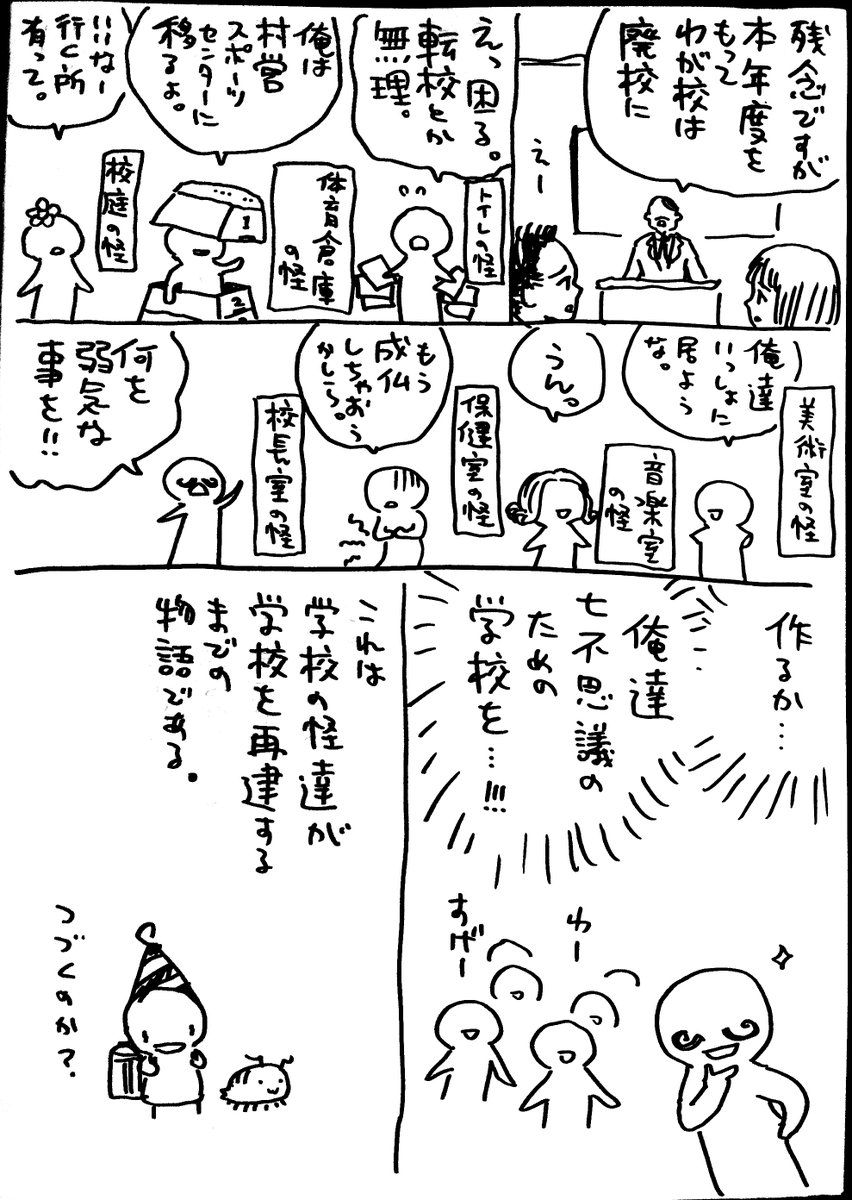 残念ですが
本年度を
もって
わが校は
廃校に
えー
えっ困る。
転校とか
無理。
トイレの怪
俺は
村営
スポーツ
センターに
移るよ。
体育倉庫
の怪
いいなー
行く所
有って。
校庭の怪
俺達
いっしょに
居よう
な。
美術室の怪
うん。
音楽室
の怪
もう
成仏
しちゃおう
かしら。
保健室の怪
何を
弱気な
事を!!
校長室の怪
作るか…
俺達
七不思議の
ための
学校を…!!!
わー
すげー
これは
学校の怪達が
学校を再建する
までの
物語である。
つづくのか?